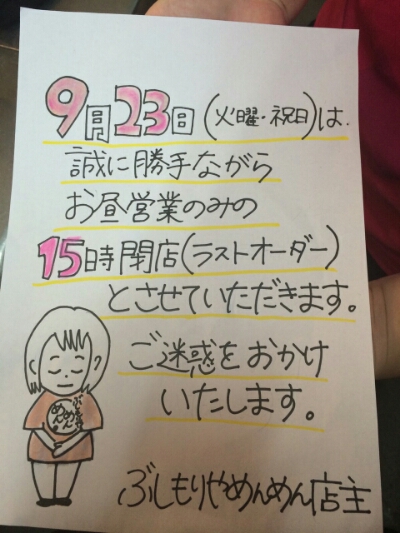 9月23日(火曜・祝日)は、
誠に勝手ながら
お昼営業のみの
15時閉店(ラストオーダー)
とさせていただきます。
ご迷惑をおかけ
いたします。
ぶしもりやめんめん店主
ぶしもりや
めんめん